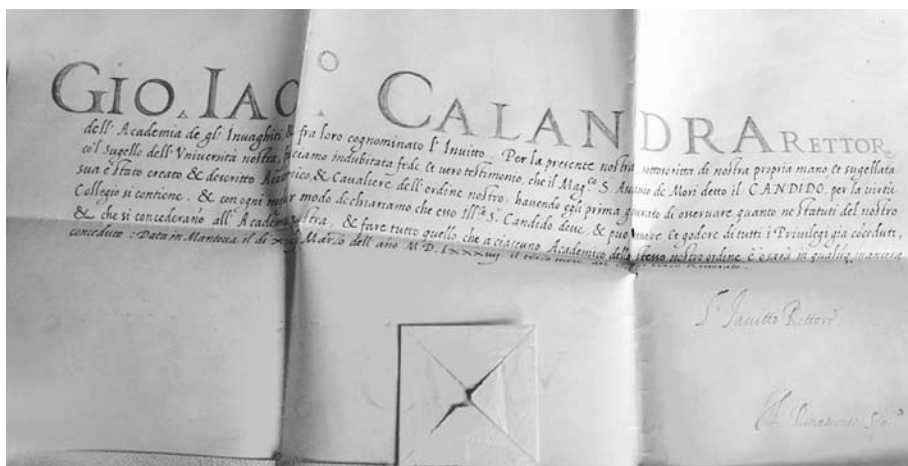 GIO. IACO. CALANDRA RETTORE
dell' Academia de gli Invaghiti & fra loro cognominato l' Invitto. Per la presente nostra, sottoscritta di nostra propria mano, et sugellata
co'l sugello dell' Università nostra, facciamo indubitata fede, et vero testimonio, che il Mag.co S. Ascanio de Mori detto il CANDIDO, per la virtù
sua è stato creato & descritto Academico, & Cavaliere dell' ordine nostro, havendo egli prima giurato di osservare quanto ne statuti del nostro
Collegio si contiene. & con ogni modo dechiariamo che esso Ill.re S. Candido deve, & può usare et godere di tutti i Privilegi già cõceduti,
& che si concederano all' Academia nostra, & fare tutto quello, che a ciascuno Academico dello stesso nostro ordine è in maniera
conceduto. Data in Mantova il di Marzo dell' anno M D. il
L' Invitto Rettore